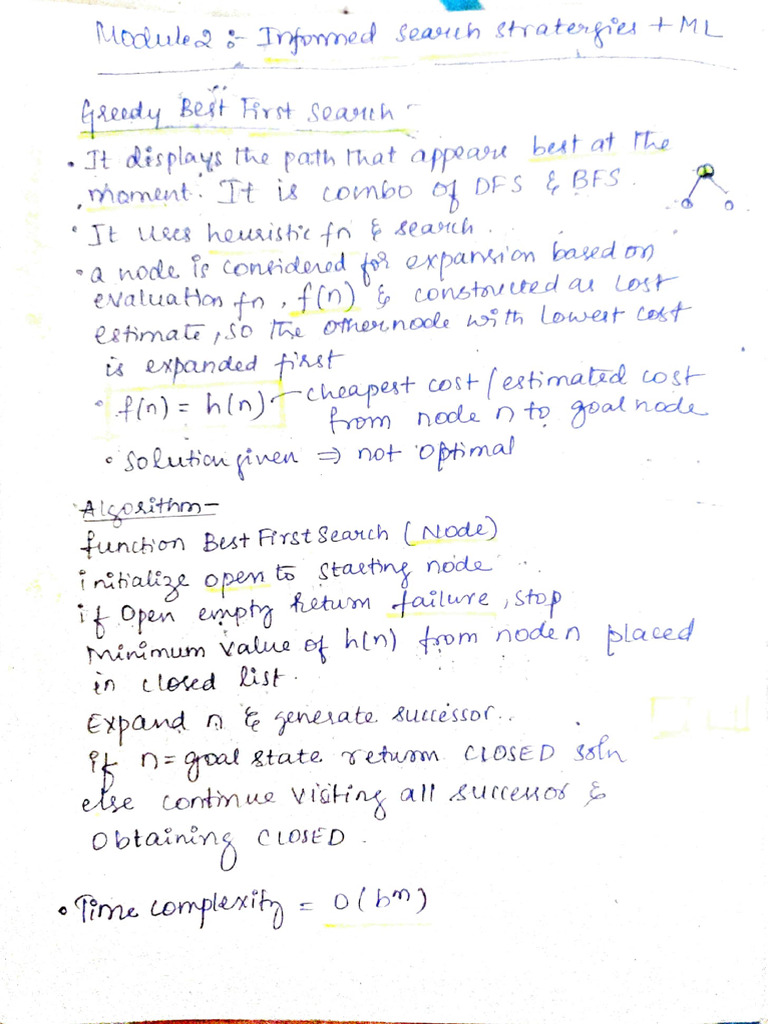 Module 2 :- Informed search stratergies + ML
Greedy Best First Search -
• It displays the path that appears best at the
moment. It is combo of DFS & BFS.
• It uses heuristic fn & search.
• a node is considered for expansion based on
evaluation fn, f(n) & constructed as cost
estimate, so the other node with lowest cost
is expanded first
• f(n) = h(n) - cheapest cost / estimated cost
from node n to goal node
• Solution given ⇒ not optimal
Algorithm -
function Best First Search (Node)
initialize open to starting node
if Open empty return failure, stop
Minimum value of h(n) from node n placed
in closed list.
Expand n & generate successor..
if n = goal state return CLOSED soln
else continue visiting all successor &
Obtaining CLOSED.
• Time complexity = O(b^m)